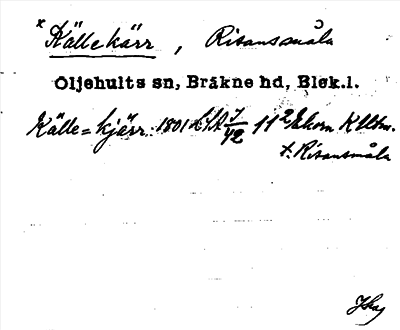 x Källekärr, Risansmåla
Oljehults sn, Bräkne hd, Blek.l.
Källe=kjärr 1801 11² Ekon Klbm.
t. Risansmåla